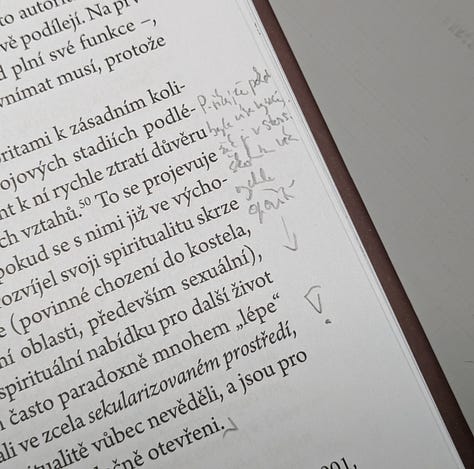 to autorita
vě podílejí. Na pr
d plní své funkce –,
vnímat musí, protože
oritami k zásadním koli-
ojových stadiích podlé-
nt k ní rychle ztratí důvěru
ch vztahů.⁵⁰ To se projevuje
pokud se s nimi již ve výcho-
rozvíjel svoji spiritualitu skrze
e (povinné chození do kostela,
ní oblasti, především sexuální),
spirituální nabídku pro další život
n často paradoxně mnohem „lépe“
ali ve zcela sekularizovaném prostředí,
ritualitě vůbec nevěděli, a jsou pro
ečně otevřeni.
2001,